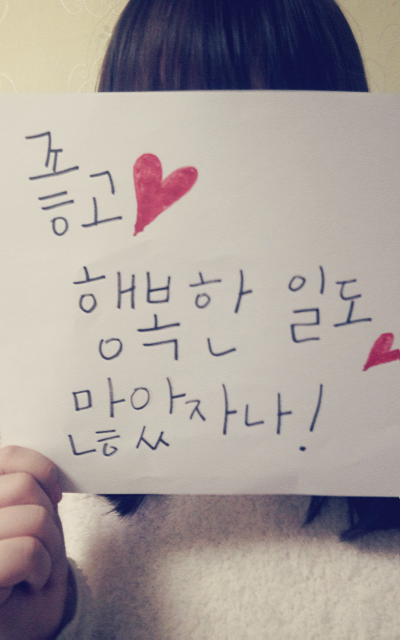 좋고
행복한 일도
많았자나!